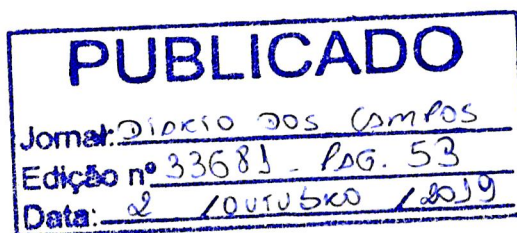 PUBLICADO
Jornal: DIÁRIO DOS CAMPOS
Edição nº 33681 - PAG. 53
Data: 2 / OUTUBRO / 2019